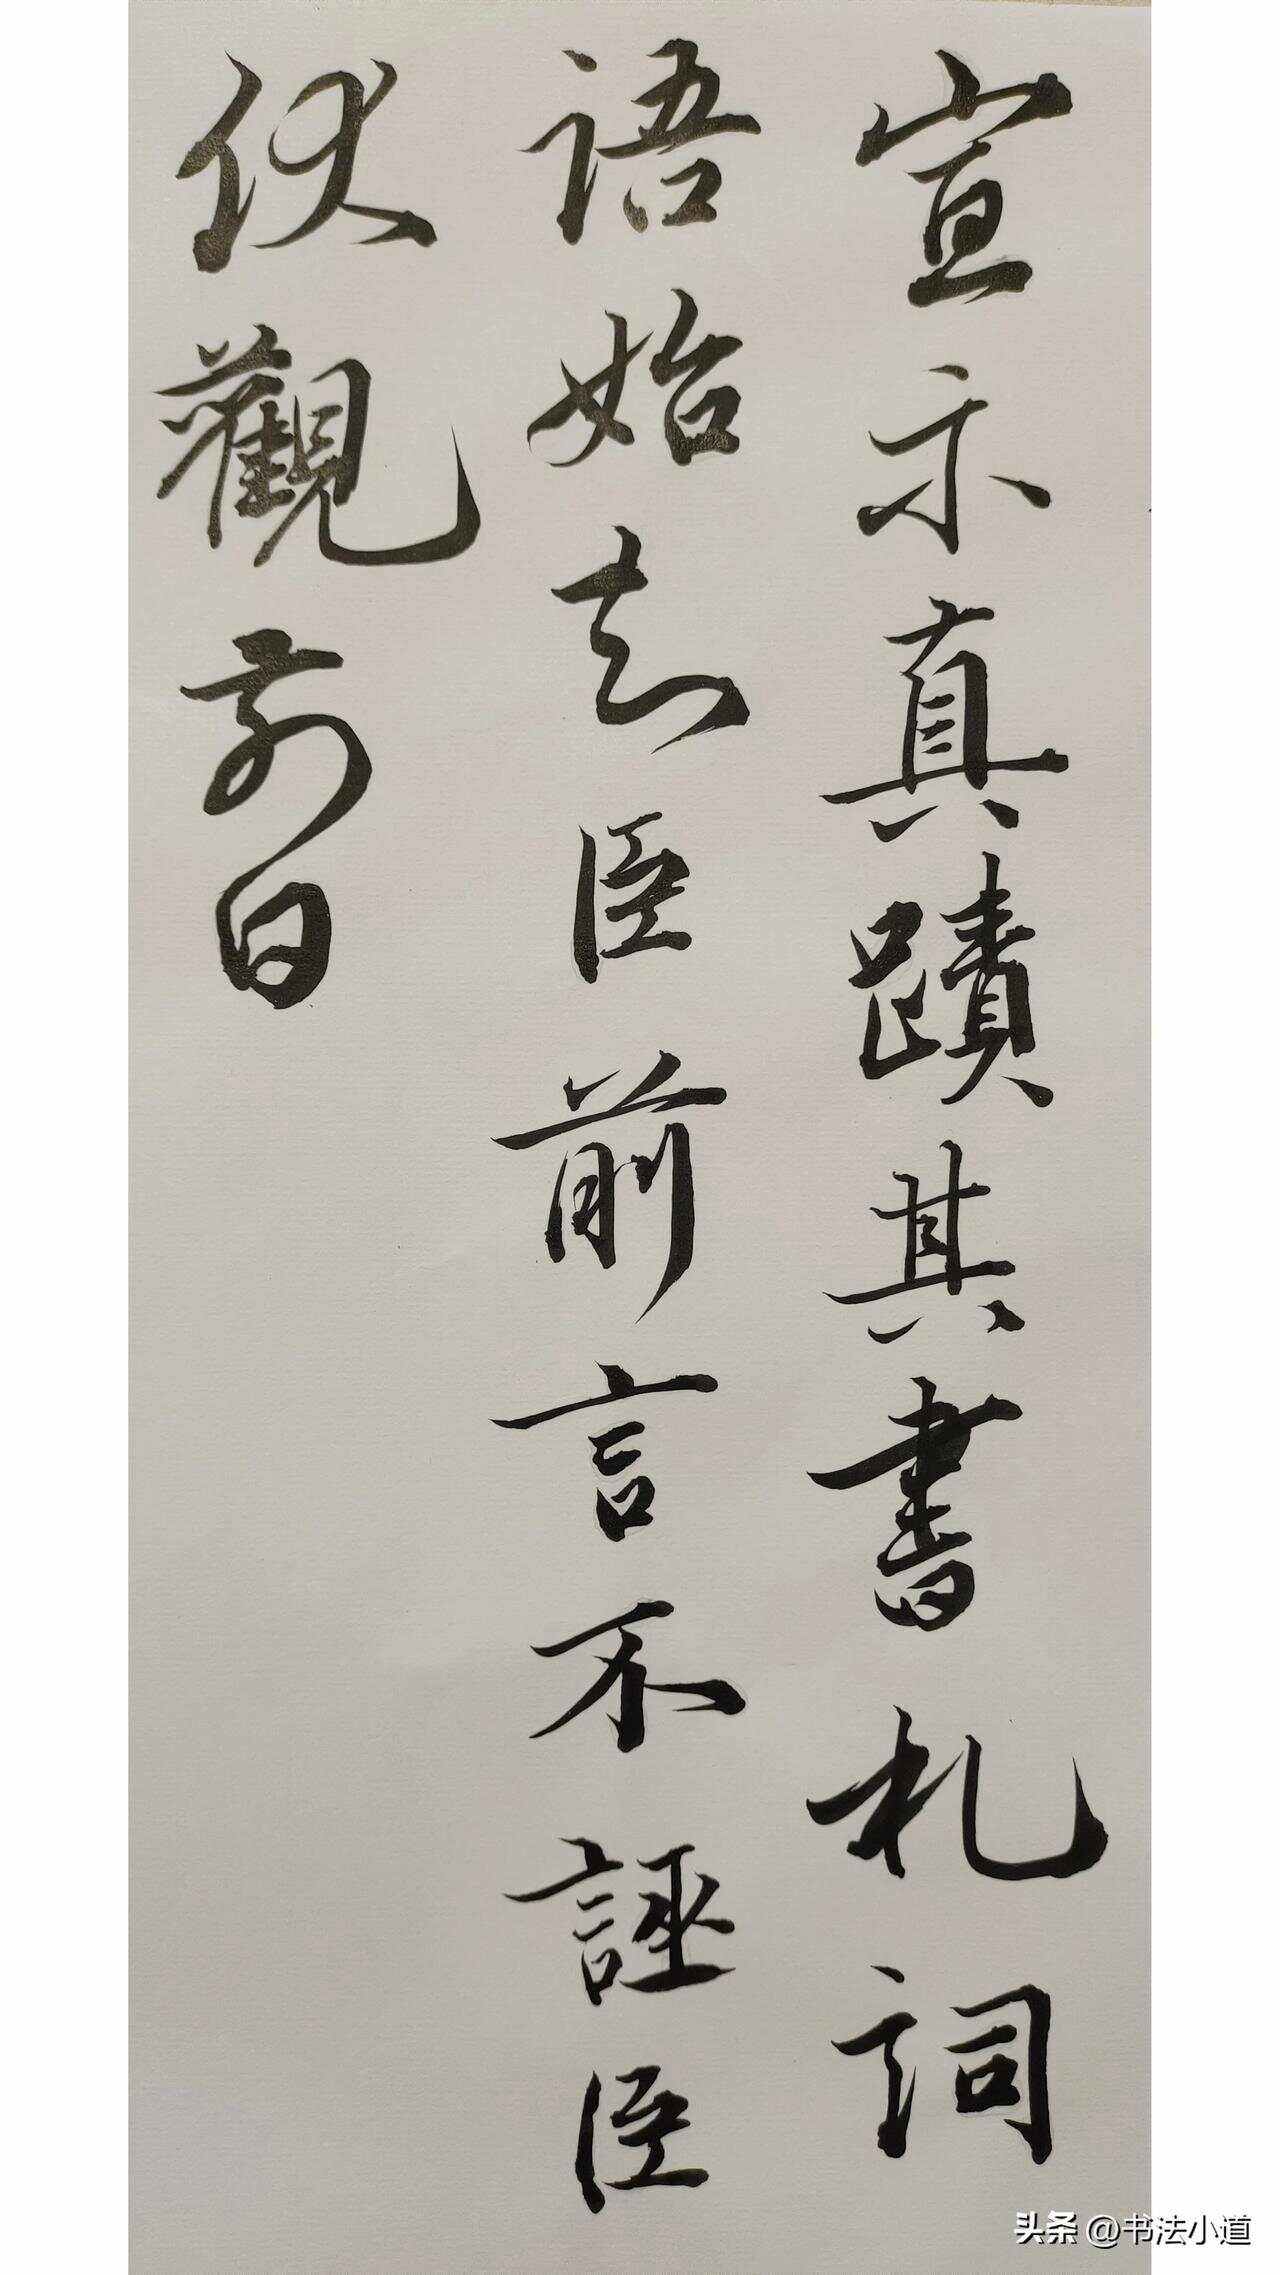 宣示真蹟其書札詞
語始知臣前言不誣臣
伏觀前日
头条 @书法小道